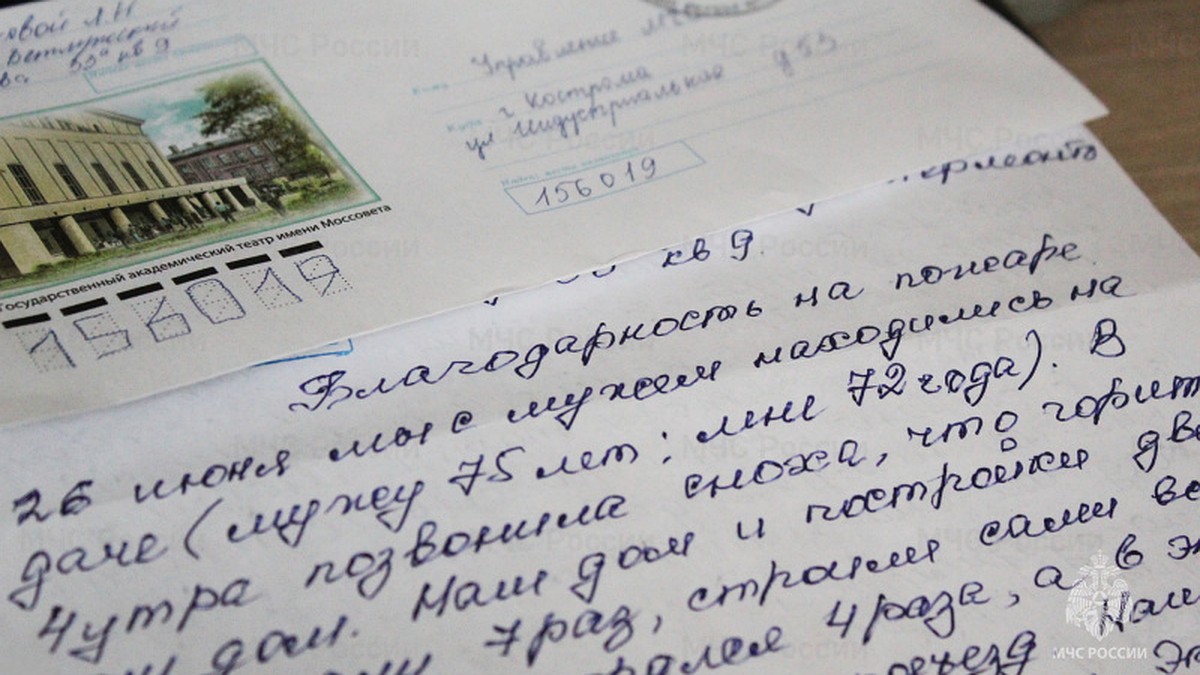 явой Л.Н
Ветлужский
ва 55а кв 9
Управление МЧС
г Кострома
ул Индустриальная д 53
156019
Государственный академический театр имени Моссовета
156019
кв 9.
Благодарность на пожаре
26 июня мы с мужем находились на
даче (мужу 75 лет: мне 72 года). В
4 утра позвонила сноха, что горит
дом. Наш дом и постройки две
7 раз, строили сами вс
4 раза, а в эт
МЧС РОССИИ